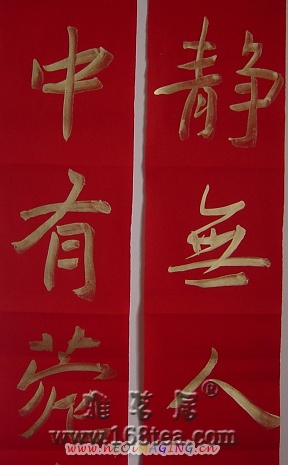 静無人
中有
雅茗居®
www.168tea.com
www.NEOIMAGING.cn